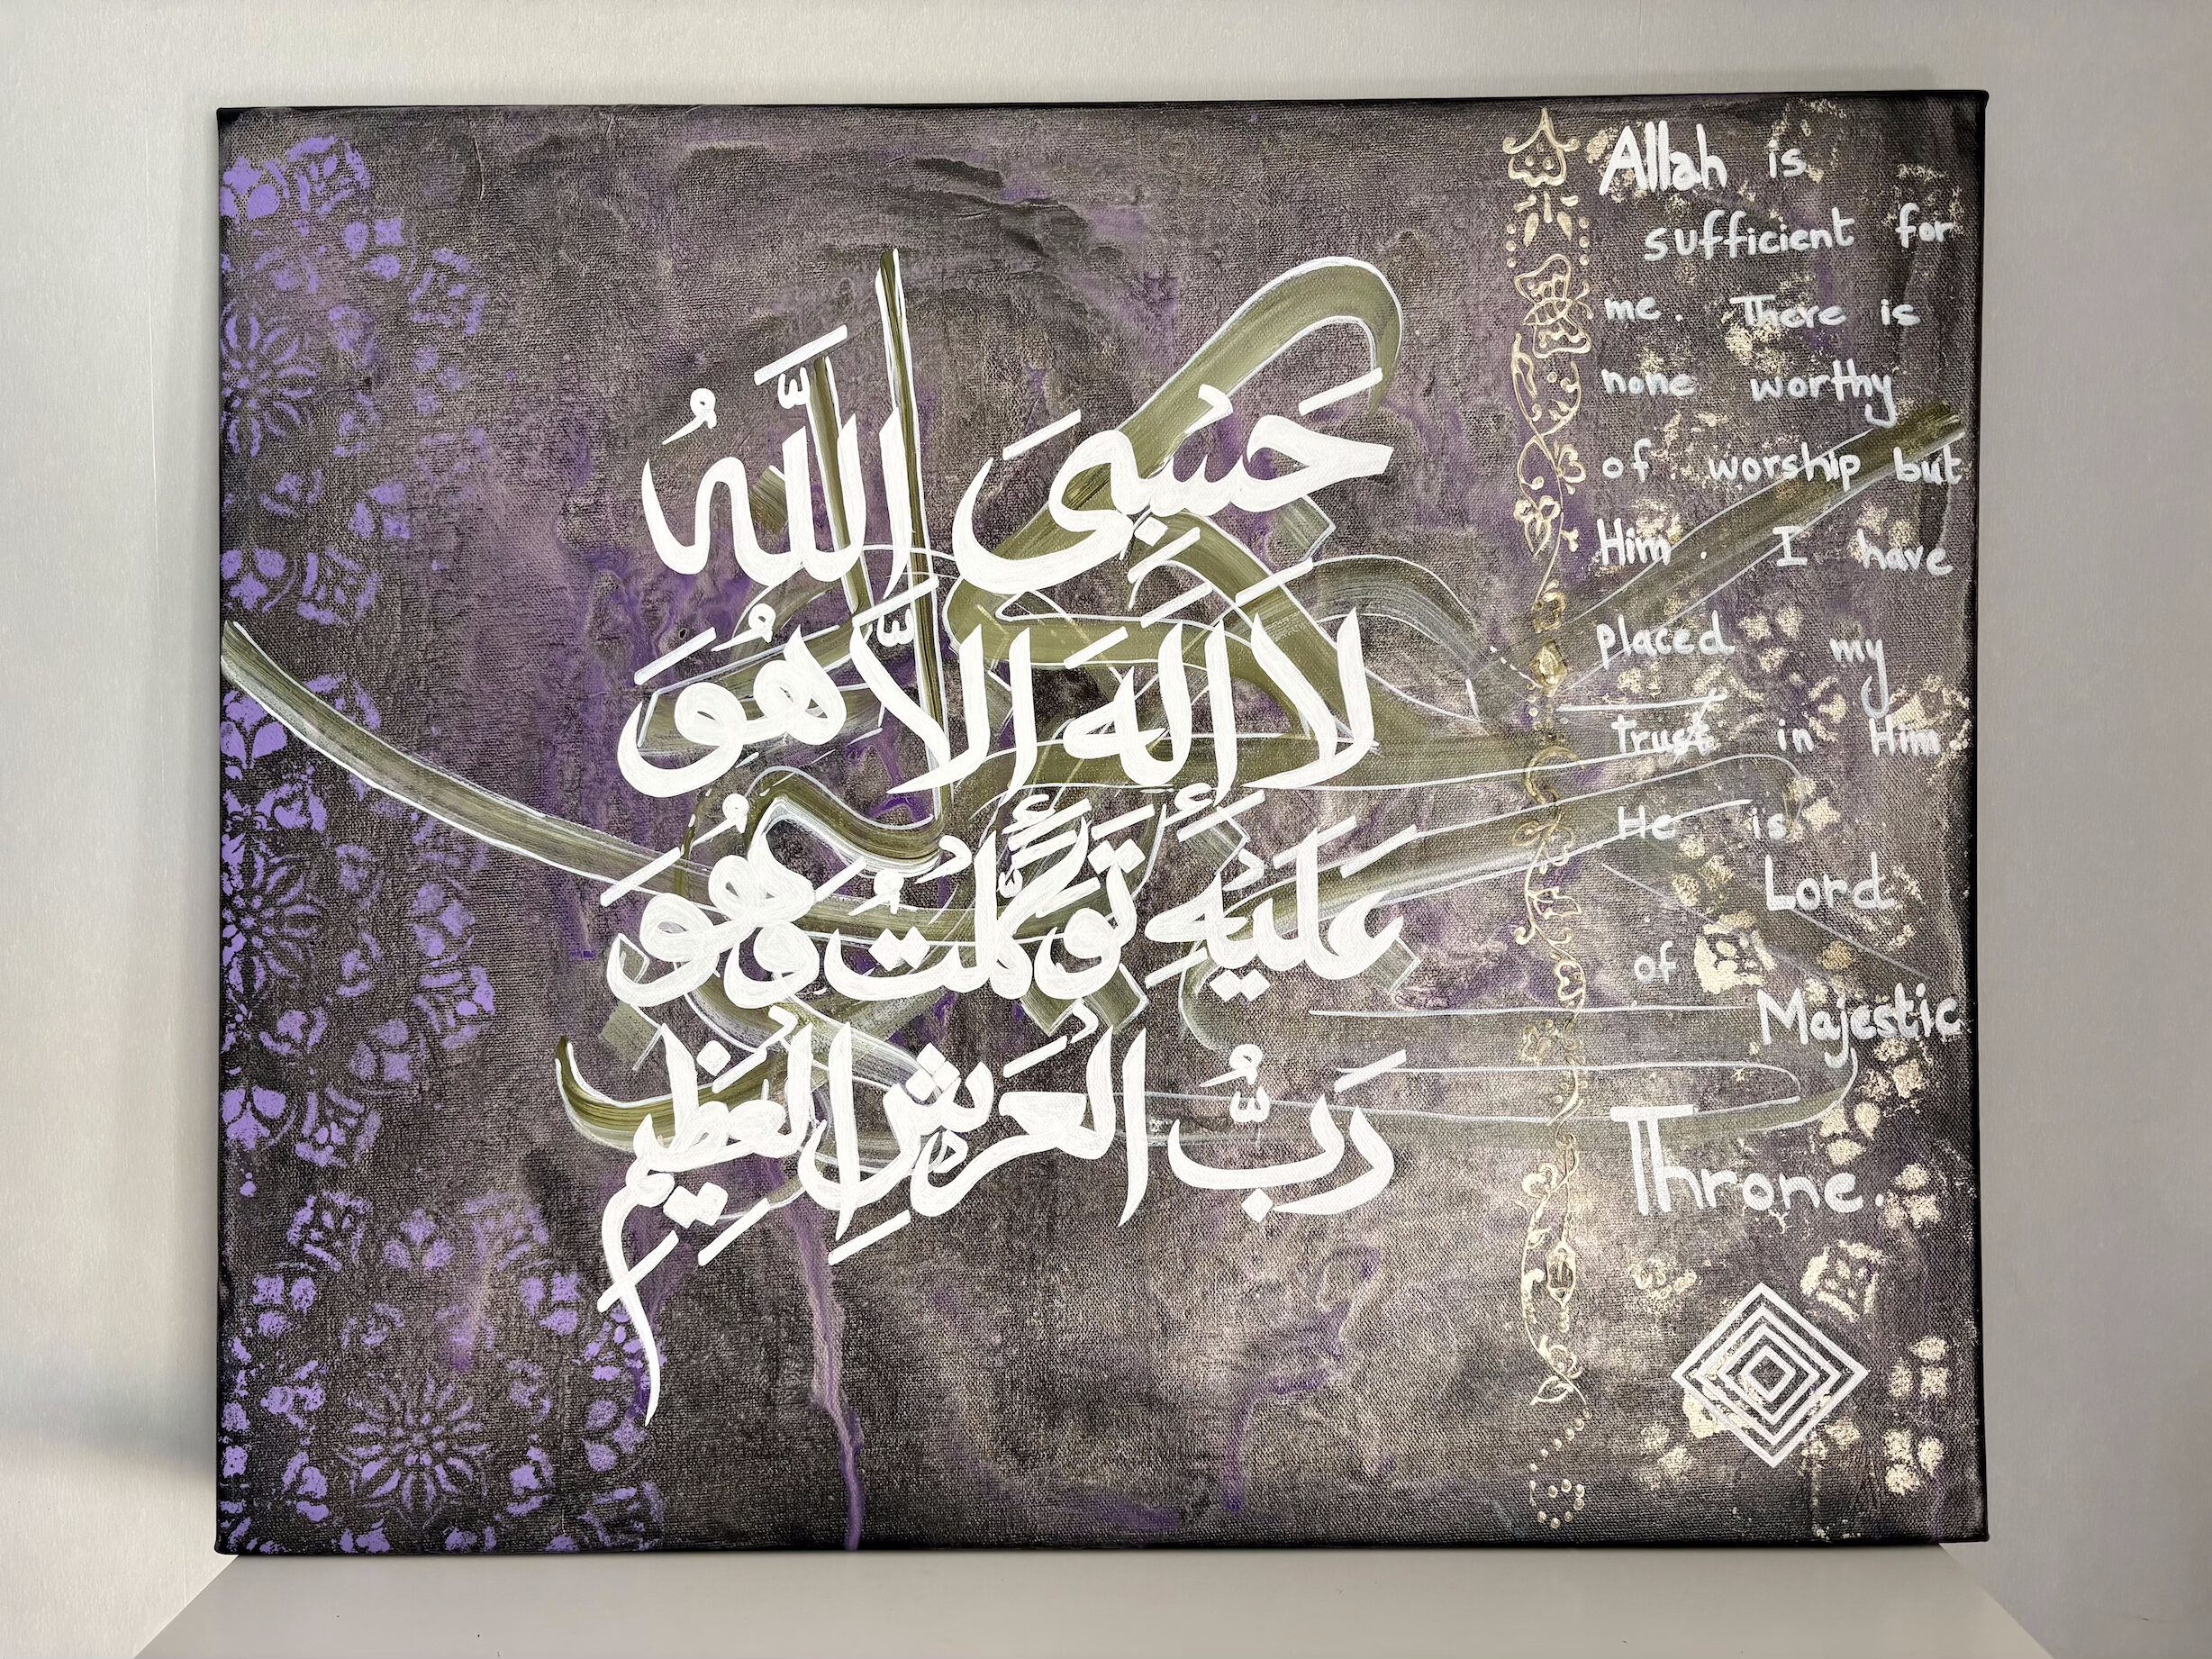 حَسْبِىَ اللَّهُ
لَا إِلَهَ إِلَّا هُوَ
عَلَيْهِ تَوَكَّلْتُ وَهُوَ
رَبُّ الْعَرْشِ الْعَظِيمِ
Allah is
sufficient for
me. There is
none worthy
of worship but
Him. I have
placed my
trust in Him
He is
Lord
of
Majestic
Throne.